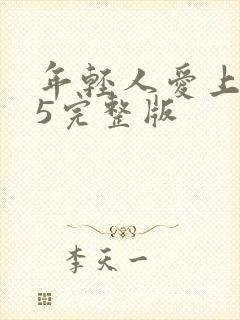 年轻人爱上
5完整版
李天一